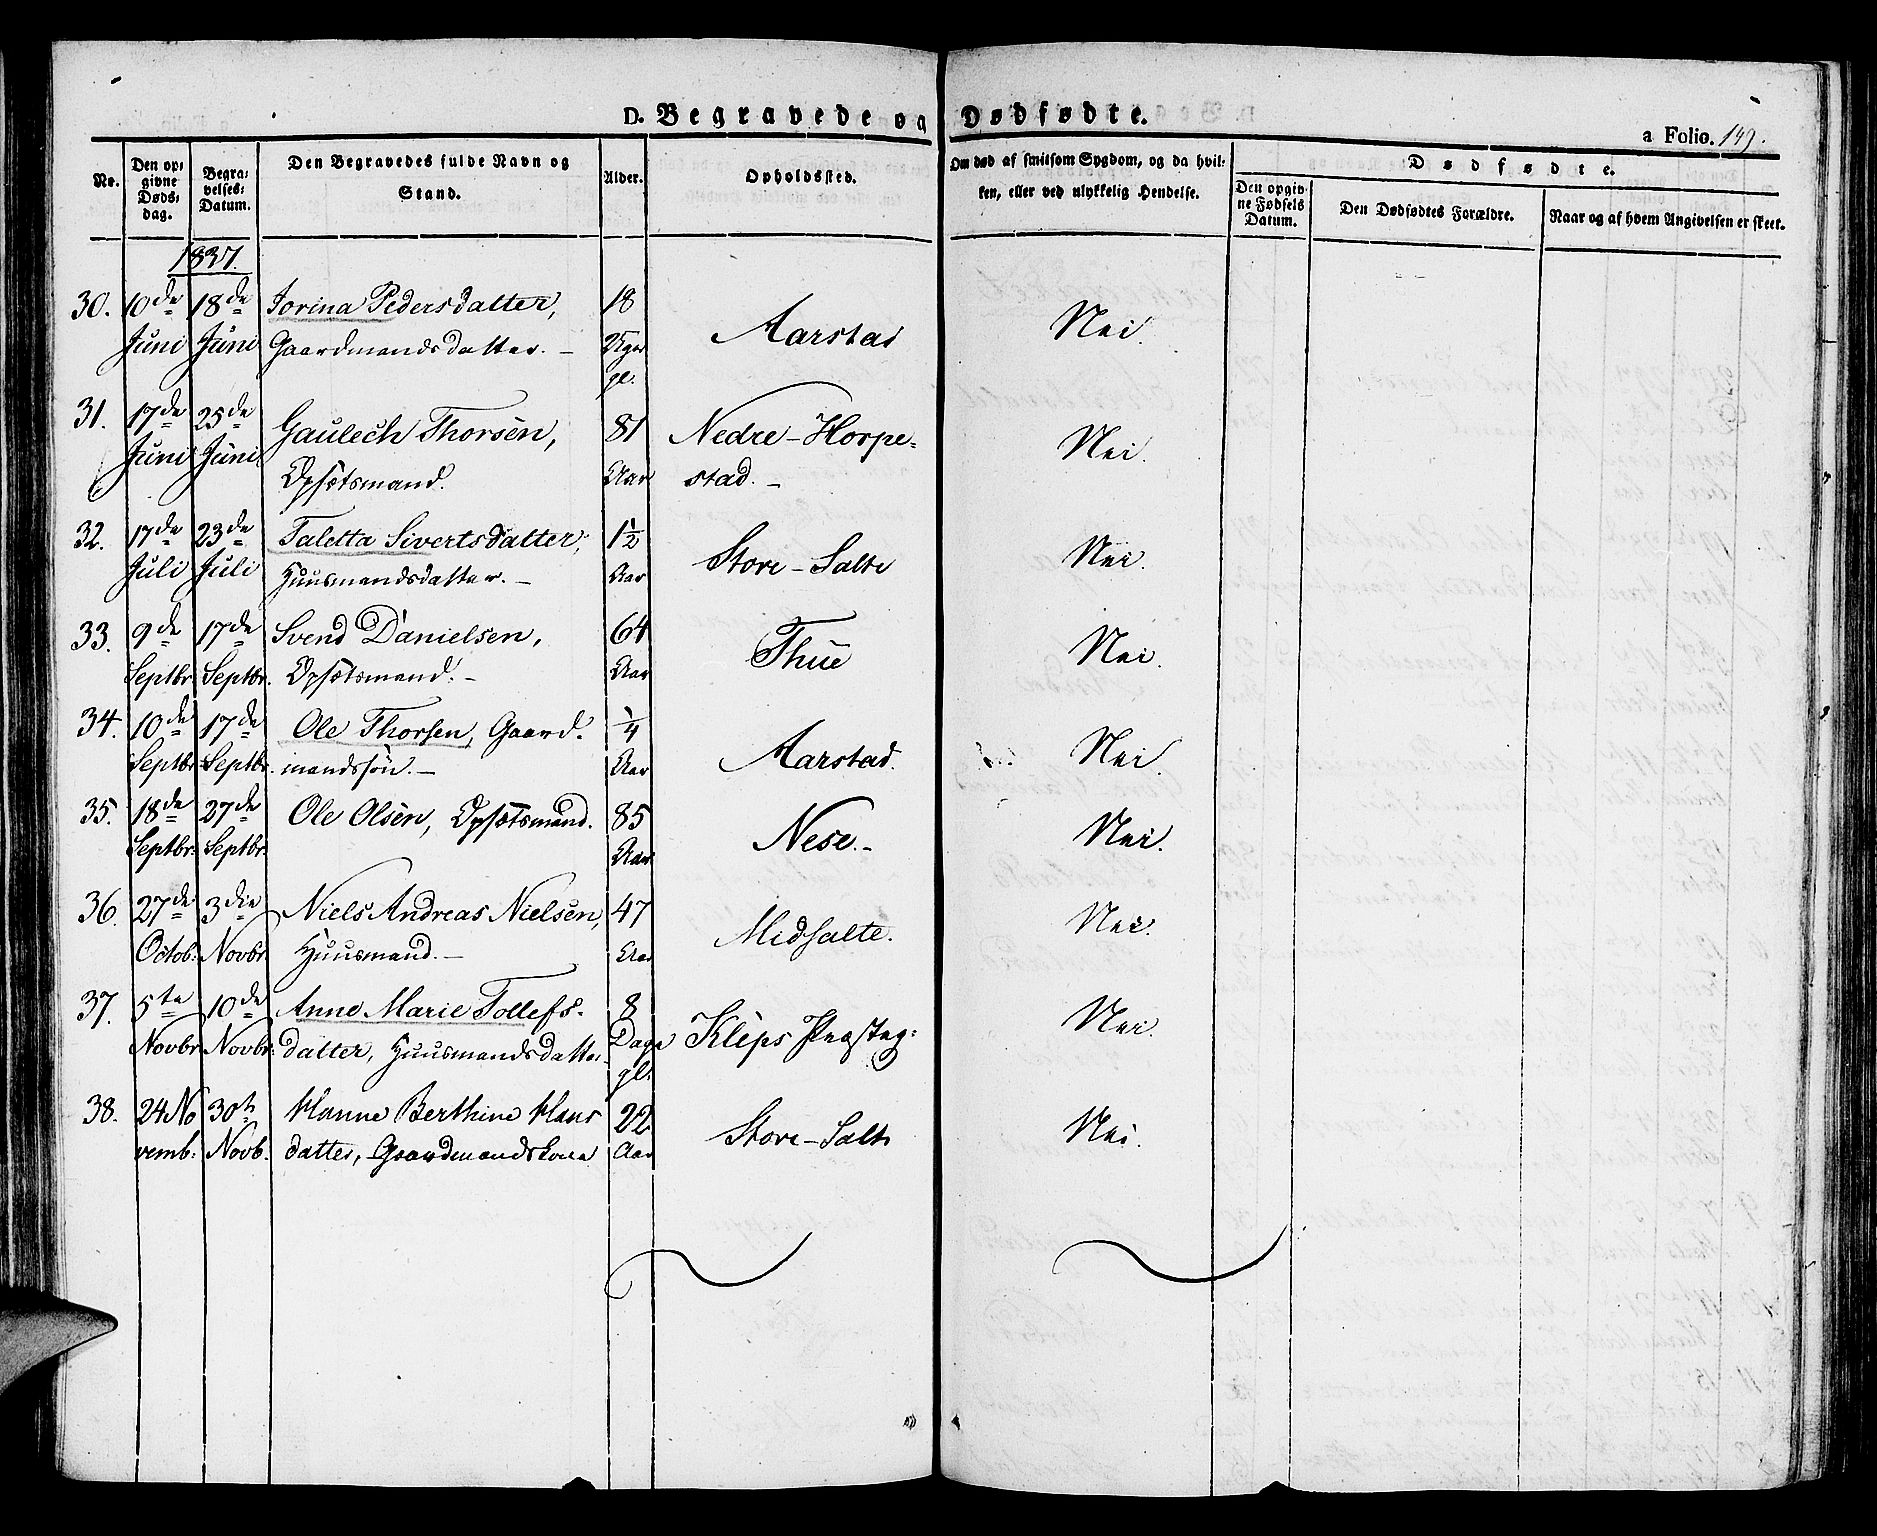 D. Begravede og Dødfødte.
a Folio. 149.
No.
Den op-
givne
Døds-
dag.
Begra-
velses-
Datum.
Den Begravedes fulde Navn og
Stand.
Alder.
Opholdssted.
Om død af smitsom Sygdom, og da hvil-
ken, eller ved ulykkelig Hendelse.
Dødfødte.
Den opgiv-
ne Fødsels
Datum.
Den Dødfødtes Forældre.
Naar og af hvem Angivelsen er skeet.
1837.
30. 10de 18de Jorina Pedersdatter, 18
Juni Juni Gaardmandsdatter. – Uger
gl.
Aarstad Nei.
31. 17de 25de Gaulech Thorsen, 81 Nedre-Horpe-
Juni Juni Opsætsmand. Aar stad. –
Nei.
32. 17de 23de Taletta Sivertsdatter, 1½
Juli Juli Huusmandsdatter. – Aar
Store-Salte Nei.
33. 9de 17de Svend Danielsen, 64
Septbr. Septbr. Opsætsmand. – Aar
Thue Nei.
34. 10de 17de Ole Thorsen, Gaard-
Septbr. Septbr. mandssøn. –
¼
Aar
Aarstad. Nei.
35. 18de 27de Ole Olsen, Opsætsmand. 85
Septbr. Septbr. Aar
Nese. – Nei.
36. 27de 3die Niels Andreas Nielsen, 47
Octob: Novbr. Huusmand. – Aar
Midsalte. Nei.
37. 5te 10de Anne Marie Tollefs- 8
Novbr. Novbr. datter, Huusmandsdatter. Dage
gl.
Kleps Præsteg: Nei.
38. 24 No 30te Hanne Berthine Hans 22
vemb: Novb. datter, Gaardmandskone Aar
Store-Salte Nei.